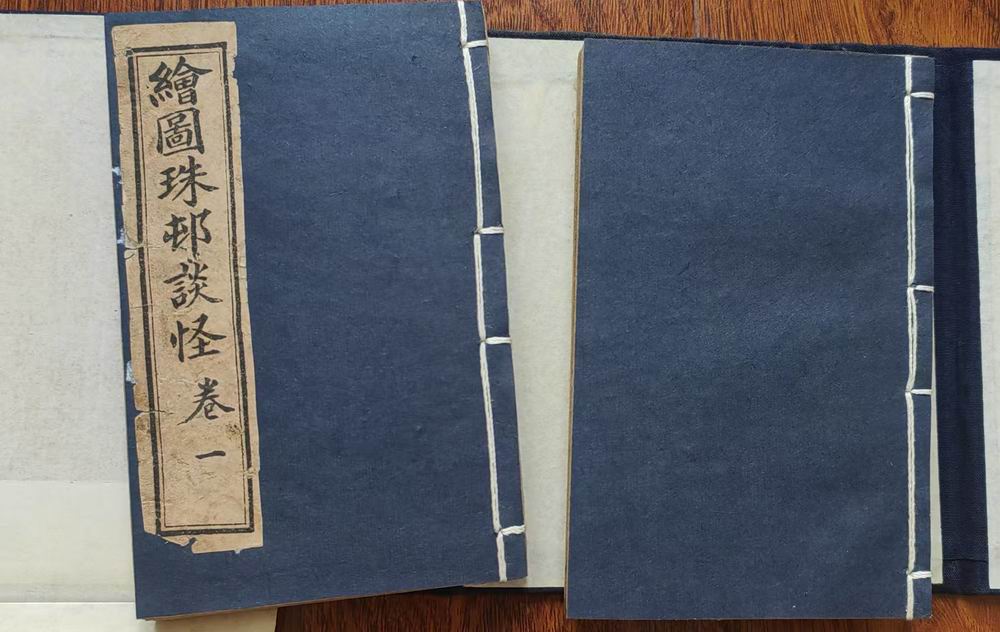 繪圖珠邨談怪 卷一